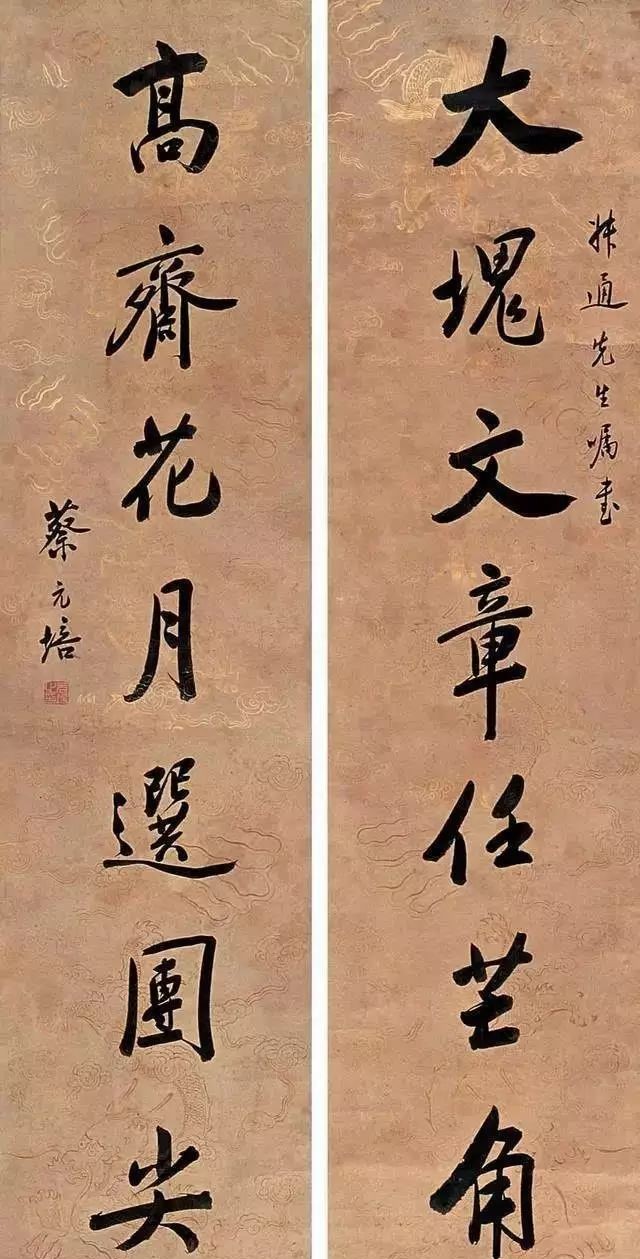 叔通先生嘱書
大塊文章任芒角
高齋花月選團尖
蔡元培